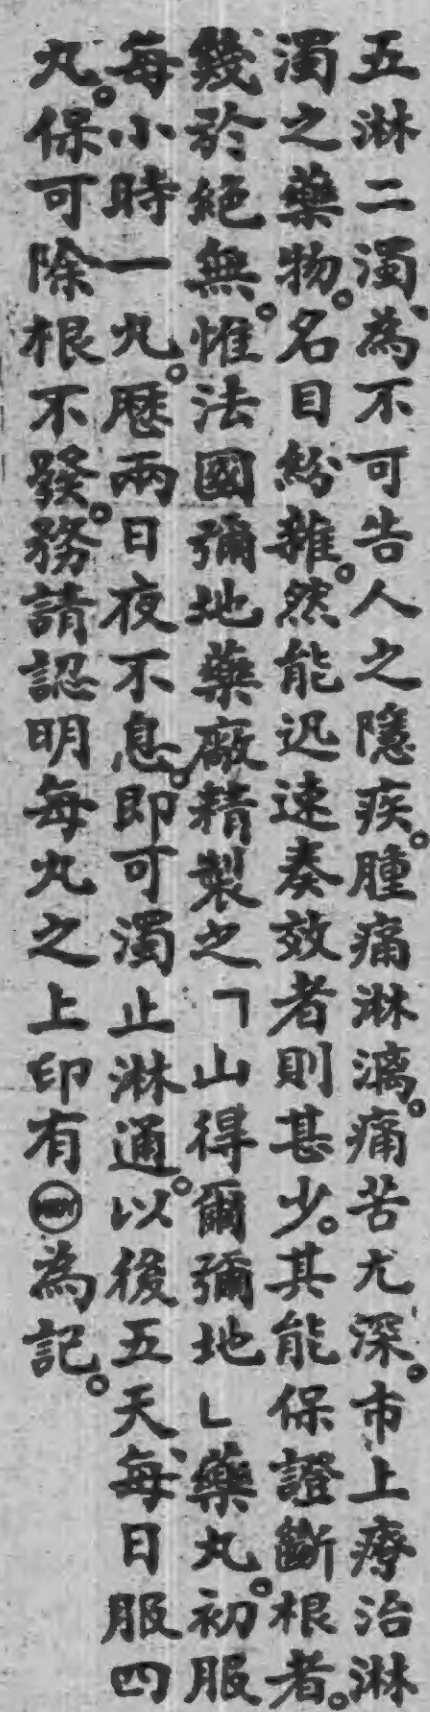 五淋二濁、為不可告人之隱疾。腫痛淋漓。痛苦尤深。市上療治淋
濁之藥物。名目紛雜。然能迅速奏效者則甚少。其能保證斷根者。
幾於絕無。惟法國彌地藥廠精製之「山得爾彌地」藥丸。初服
每小時一丸。歷兩日夜不息。即可濁止淋通。以後五天每日服四
丸。保可除根不發。務請認明每丸之上印有為記。